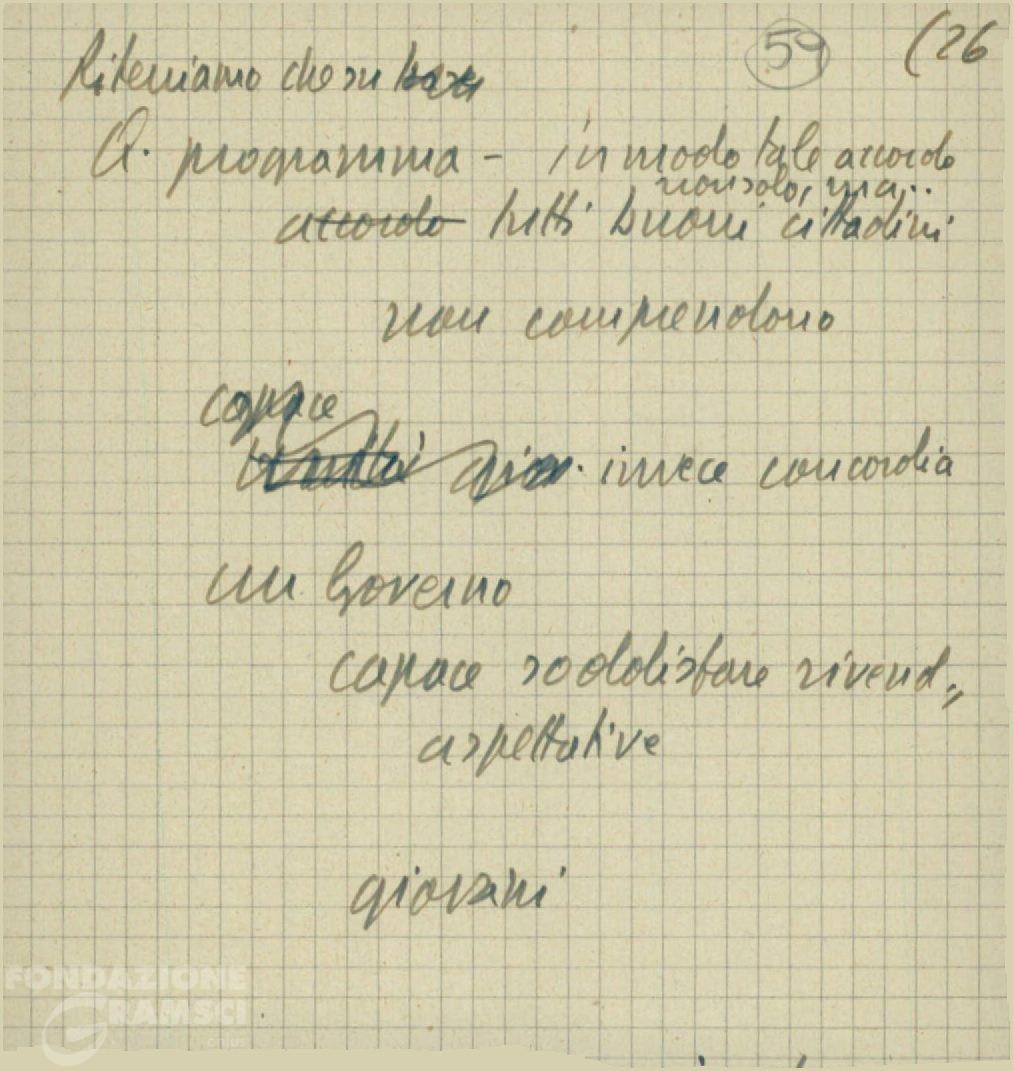 59 (26
Riteniamo che su base
Q. programma - in modo tale accordo
non solo, ma..
accordo tutti buoni cittadini
non comprendono
capace
invece concordia
un Governo
capace soddisfare rivend.,
aspettative
giovani
FONDAZIONE
GRAMSCI
onlus